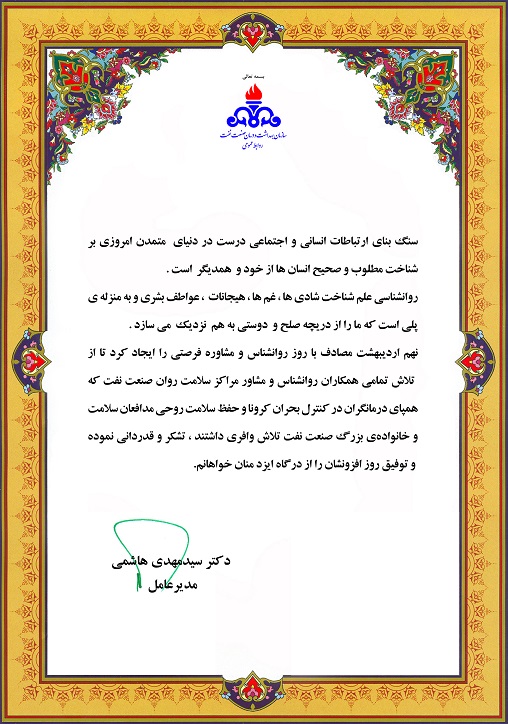 بسمه تعالی
سازمان بهداشت و درمان صنعت نفت
روابط عمومی
سنگ بنای ارتباطات انسانی و اجتماعی درست در دنیای متمدن امروزی بر
شناخت مطلوب و صحیح انسان ها از خود و همدیگر است .
روانشناسی علم شناخت شادی ها ، غم ها ، هیجانات ، عواطف بشری و به منزله ی
پلی است که ما را از دریچه صلح و دوستی به هم نزدیک می سازد .
نهم اردیبهشت مصادف با روز روانشناس و مشاوره فرصتی را ایجاد کرد تا از
تلاش تمامی همکاران روانشناس و مشاور مراکز سلامت روان صنعت نفت که
همپای درمانگران در کنترل بحران کرونا و حفظ سلامت روحی مدافعان سلامت
و خانواده‌ی بزرگ صنعت نفت تلاش وافری داشتند ، تشکر و قدردانی نموده
و توفیق روز افزونشان را از درگاه ایزد منان خواهانم.
دکتر سیدمهدی هاشمی
مدیرعامل